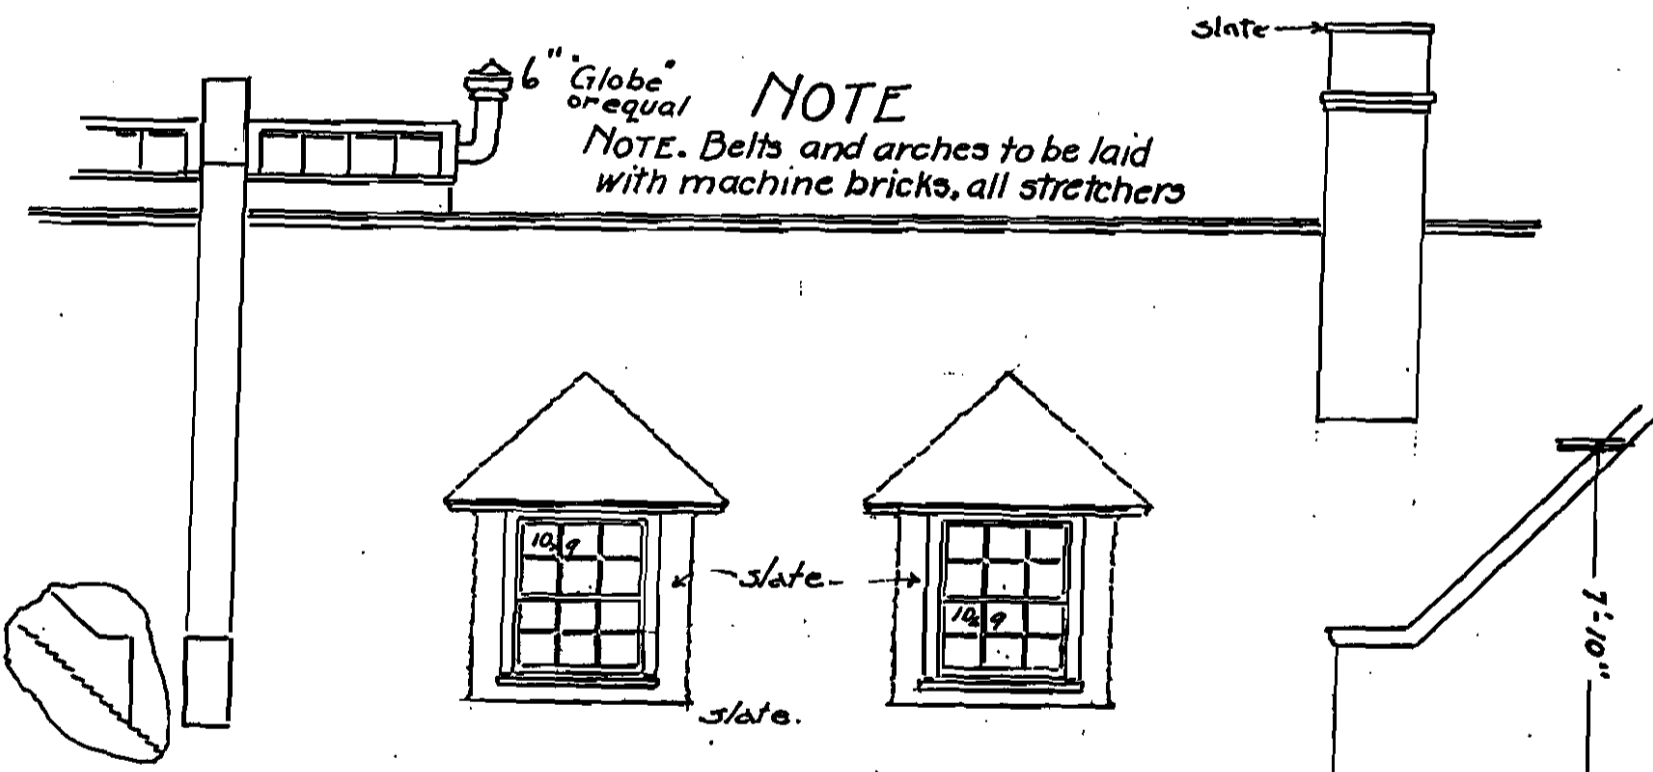 slate
6" "Globe"
or equal
NOTE
NOTE. Belts and arches to be laid
with machine bricks, all stretchers
10x9
slate.
10x9
7'-10"
slate.